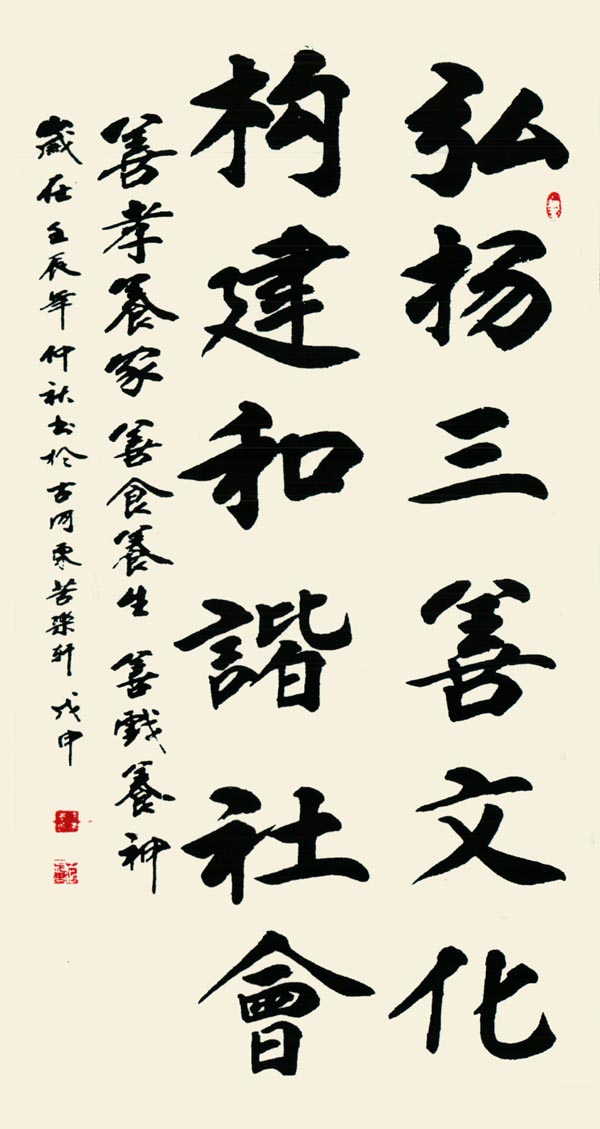 弘扬三善文化
构建和諧社會
善孝養家 善食養生 善戲養神
歲在壬辰年仲秋书於古河東苦樂轩 戊申